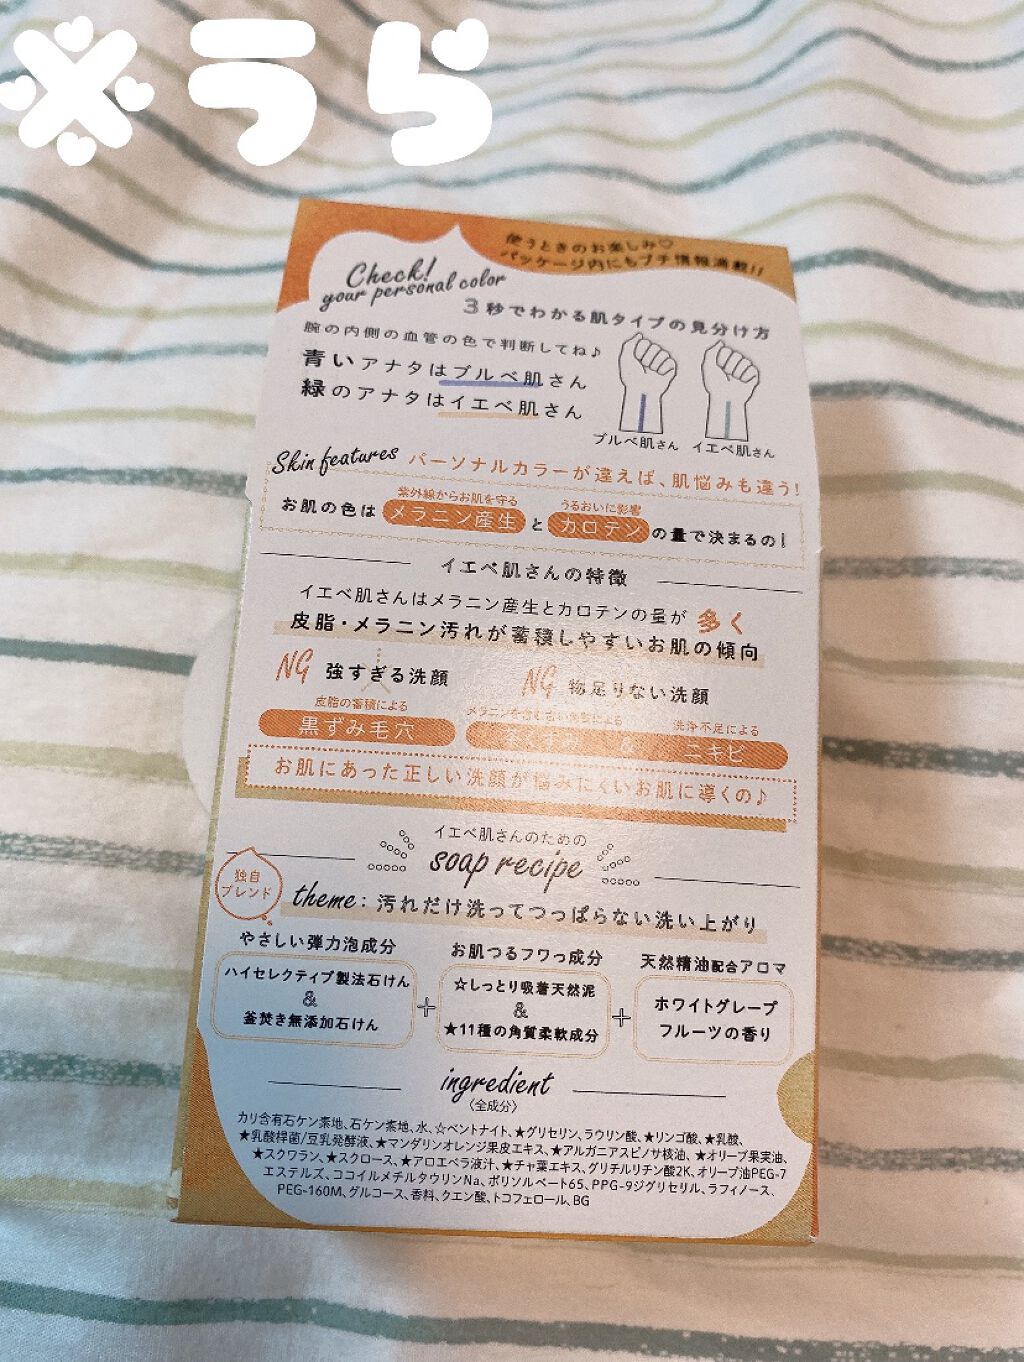 ※うら
使うときのお楽しみ♡
パッケージ内にもプチ情報満載!!
Check!
your personal color
3秒でわかる肌タイプの見分け方
腕の内側の血管の色で判断してね♪
青いアナタはブルべ肌さん
緑のアナタはイエベ肌さん
ブルべ肌さん イエベ肌さん
Skin features パーソナルカラーが違えば、肌悩みも違う!
紫外線からお肌を守る うるおいに影響
お肌の色は メラニン産生 と カロテン の量で決まるの!
イエベ肌さんの特徴
イエベ肌さんはメラニン産生とカロテンの量が 多く
皮脂・メラニン汚れが蓄積しやすいお肌の傾向
NG 強すぎる洗顔 NG 物足りない洗顔
皮脂の蓄積による 洗浄不足による
黒ずみ毛穴 & ニキビ
お肌にあった正しい洗顔が悩みにくいお肌に導くの♪
イエベ肌さんのための
soap recipe
独自
ブレンド
theme: 汚れだけ洗ってつっぱらない洗い上がり
やさしい弾力泡成分 お肌つるフワっ成分 天然精油配合アロマ
ハイセレクティブ製法石けん
&
釜焚き無添加石けん
+
☆しっとり吸着天然泥
&
★11種の角質柔軟成分
+
ホワイトグレープ
フルーツの香り
ingredient
〈全成分〉
カリ含有石ケン素地、石ケン素地、水、☆ベントナイト、★グリセリン、ラウリン酸、★リンゴ酸、★乳酸、
★乳酸桿菌/豆乳発酵液、★マンダリンオレンジ果皮エキス、★アルガニアスピノサ核油、★オリーブ果実油、
★スクワラン、★スクロース、★アロエベラ液汁、★チャ葉エキス、グリチルリチン酸2K、オリーブ油PEG-7
エステルズ、ココイルメチルタウリンNa、ポリソルベート65、PPG-9ジグリセリル、ラフィノース、
PEG-160M、グルコース、香料、クエン酸、トコフェロール、BG